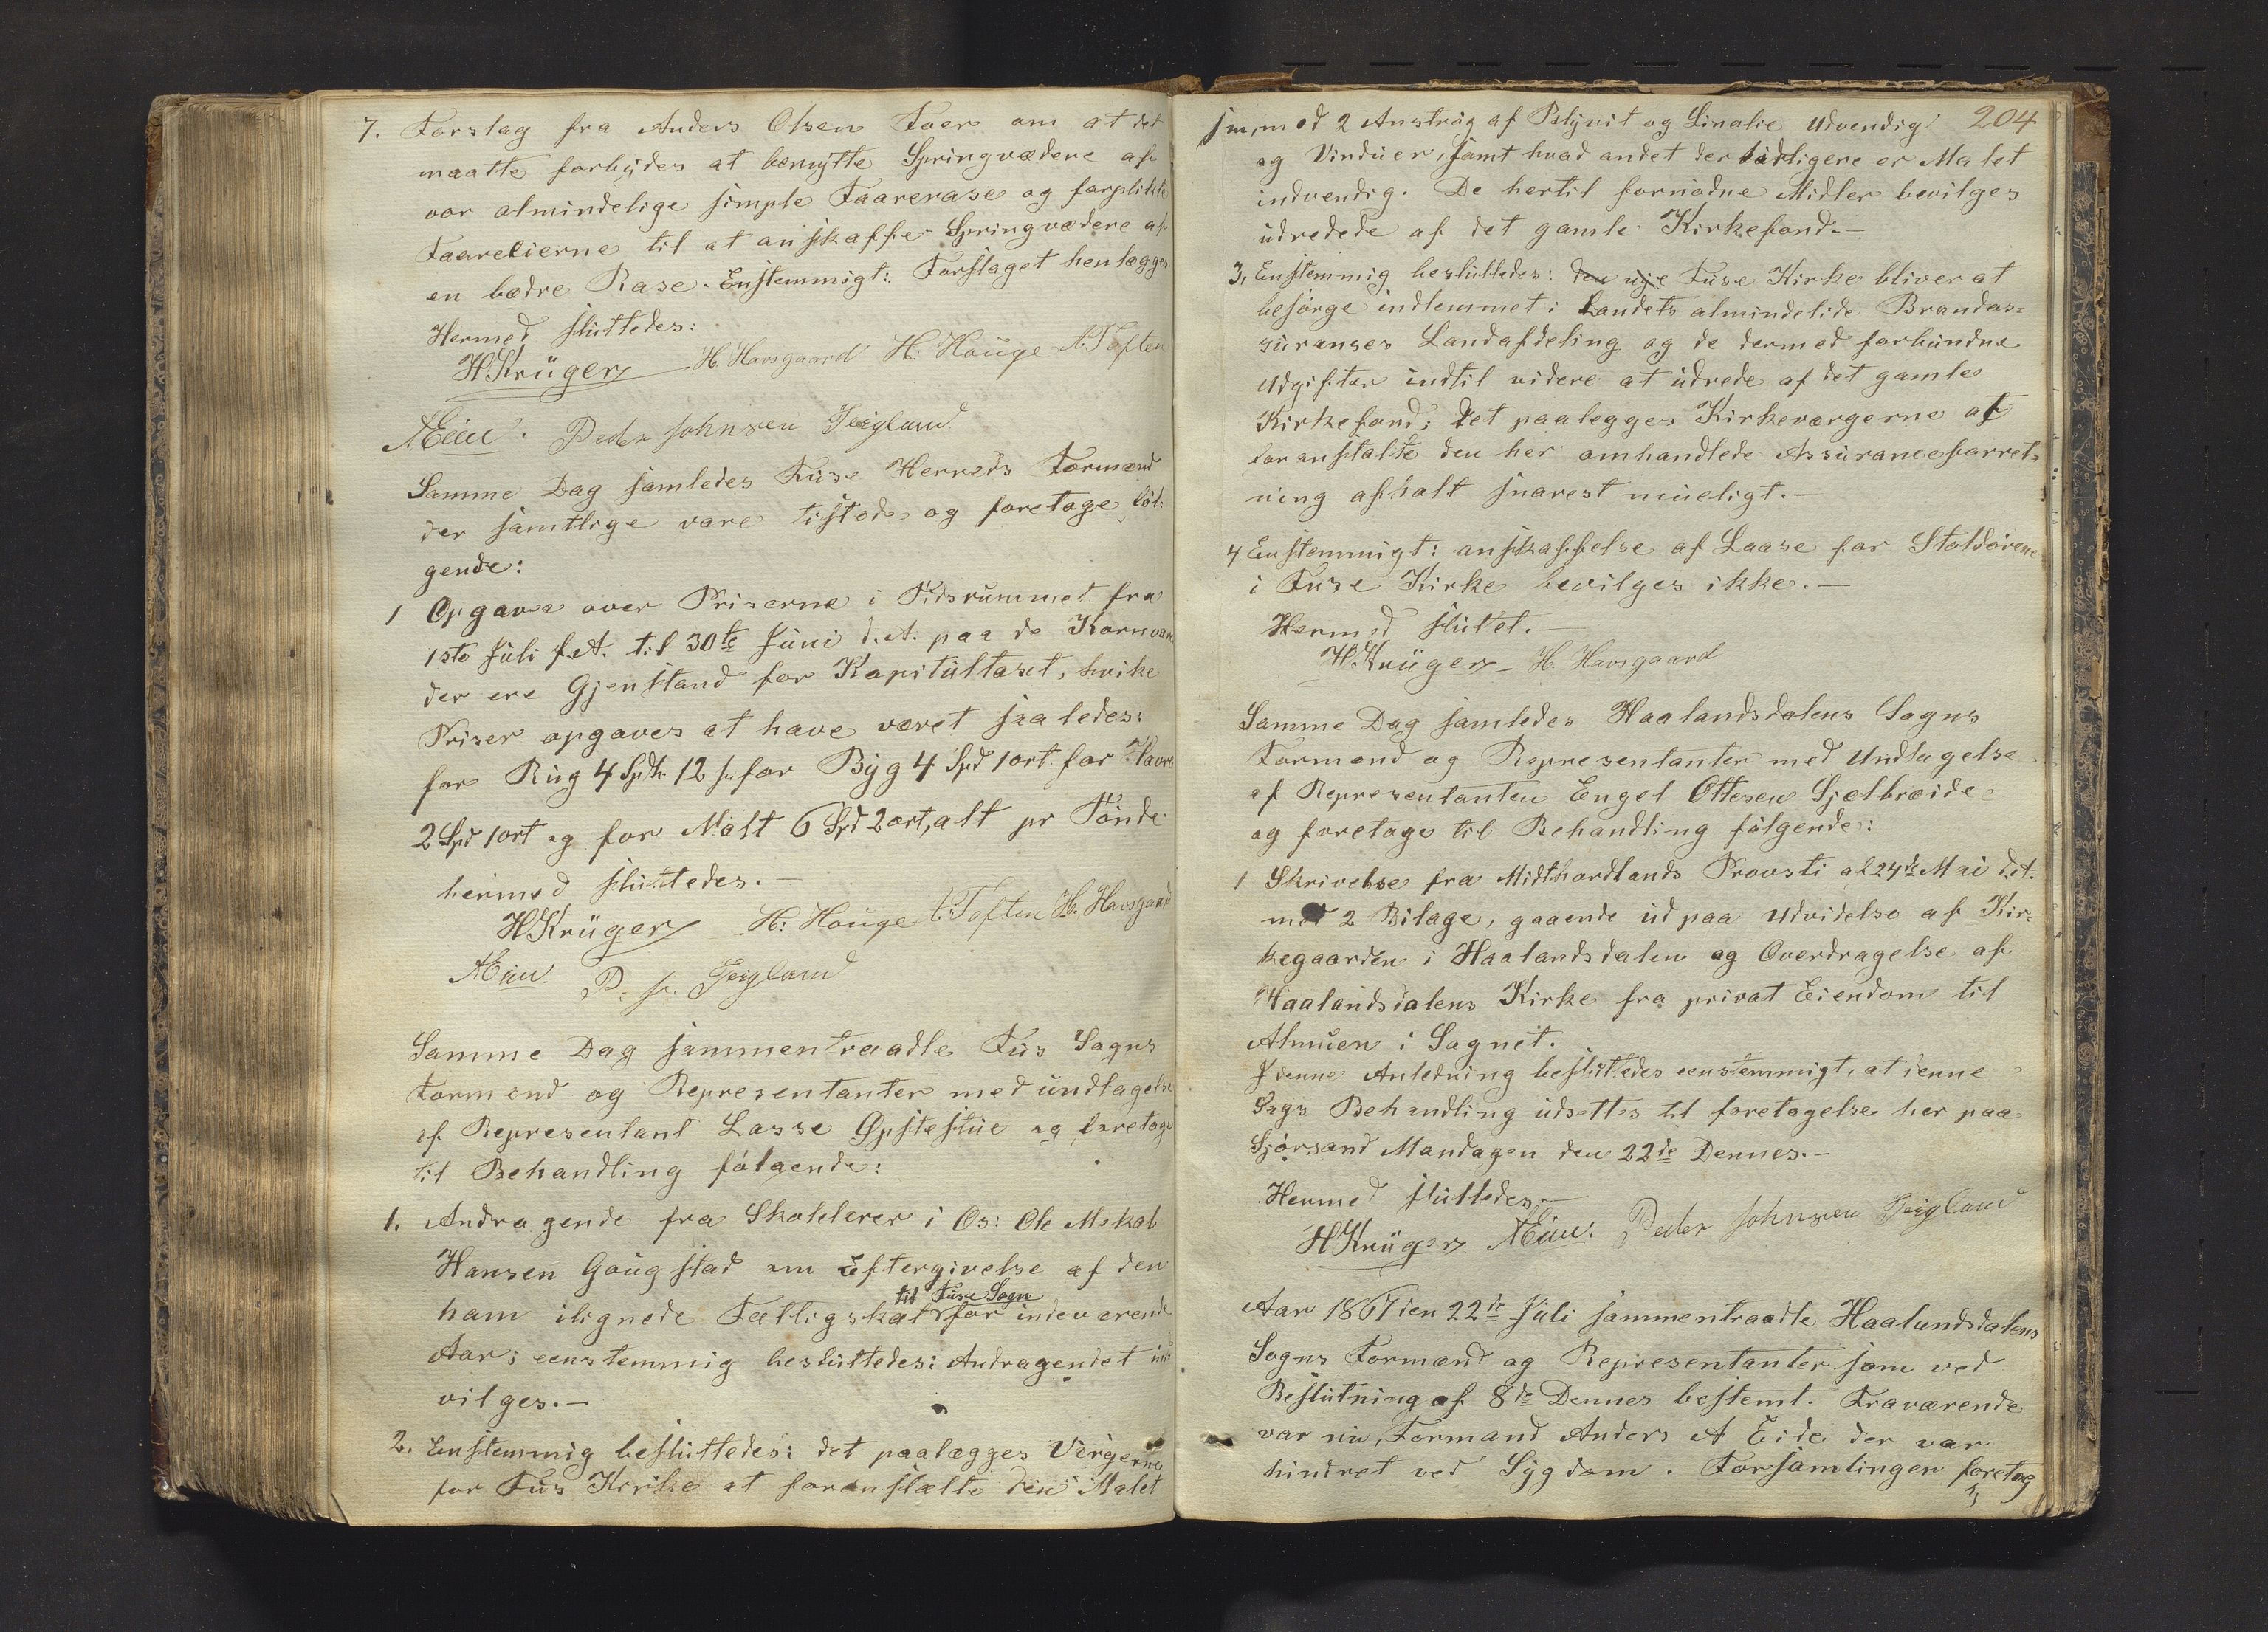 7. Forslag fra Anders Olsen Toer om at det
maatte forbydes at benytte Springvædere af
vor almindelige simple Faarerase og forplikte
Faareeierne til at anskaffe Springvædere af
en bædre Rase. Enstemmigt: Forslaget henlægges.
Hermed sluttedes:
HKrüger H. Havsgaard H: Houge A. Toften
AEide. Peder Johnsen Teigland
Samme Dag samledes Fuse Herreds Formænd
der samtlige vare tilstede og foretoge föl-
gende:
1 Opgava over Priserne i Tidsrummet fra
1ste Juli f.A. til 30te Juni d.A. paa de Kornvare
der ere Gjenstand for Kapitültaxt, hvike
Priser opgaves at have været saaledes:
for Rug 4 Spdr. 12 s. for Byg 4 Spd 1 ort. for Havre
2 Spd 1 ort og for Malt 6 Spd 2 ort, alt pr Tönde
hermed sluttedes.-
HKrüger H: Houge A. Toften H. Havsgaard
AEide. P. J. Teigland
Samme Dag sammentraadte Fus Sogns
Formænd og Representanter med undtagelse
af Representant Lasse Opstestue og foretoge
til Behandling fölgende:
1. Andragende fra Skolelærer i Os: Ole M.skal
Hansen Gaugstad om Eftergivelse af den
til Fuse Sogn
ham ilignede Fattigskat for indeværende
Aar; eenstemmig besluttedes: Andragendet ind
vilges.-
2. Enstemmig besluttedes: det paalægges Vergerne
for Fus Kirke at foranstalte den Malet
204
in, med 2 Anströg af Blyvit og Linolie Udvendig
og Vinduer, samt hvad andet der tidligere er Malet
indvendig. De hertil fornödne Midler bevilges
udredede af det gamle Kirkefond.-
3, Enstemmig besluttedes: den nye Fuse Kirke bliver at
besörge indlemmet i Landets almindelide Brandas-
suranses Landafdeling og de dermed forbundne
Udgifter indtil videre at udrede af det gamle
Kirkefond; det paalegges Kirkeværgerne at
foranstalte den her omhandlede Assuranceforret-
ning afholt snarest mueligt.-
4 Enstemmigt: anskaffelse af Laase for Stoldörene
i Fuse Kirke bevilges ikke.-
Hermed slutet.-
HKrüger H. Havsgaard
Samme Dag samledes Haalandsdalens Sogns
Formænd og Representanter med Undtagelse
af Representanten Engel Ottesen Gjelbreide
og foretoge til Behandling fölgende:
1 Skrivelse fra Midthordlands Provsti af 24de Mai d.A.
med 2 Bilage, gaaende ud paa Udvidelse af Kir-
kegaarden i Haalandsdalen og Overdragelse af
Haalandsdalens Kirke fra privat Eiendom til
Almuen i Sognet.
I denne Anledning besluttedes eenstemmigt, at denne
Sags Behandling udsettes til foretagelse her paa
Sjörsand Mandagen den 22de Dennes.-
Hermed sluttedes.-
HKrüger AEide. Peder Johnsen Teigland
Aar 1867 den 22de Juli sammentraadte Haalandsdalens
Sogns Formænd og Representanter som ved
Beslutning af 8de Dennes bestemt. Fraværende
var nu, Formand Anders A Eide der var
hindret ved Sygdom. Forsamlingen foretog